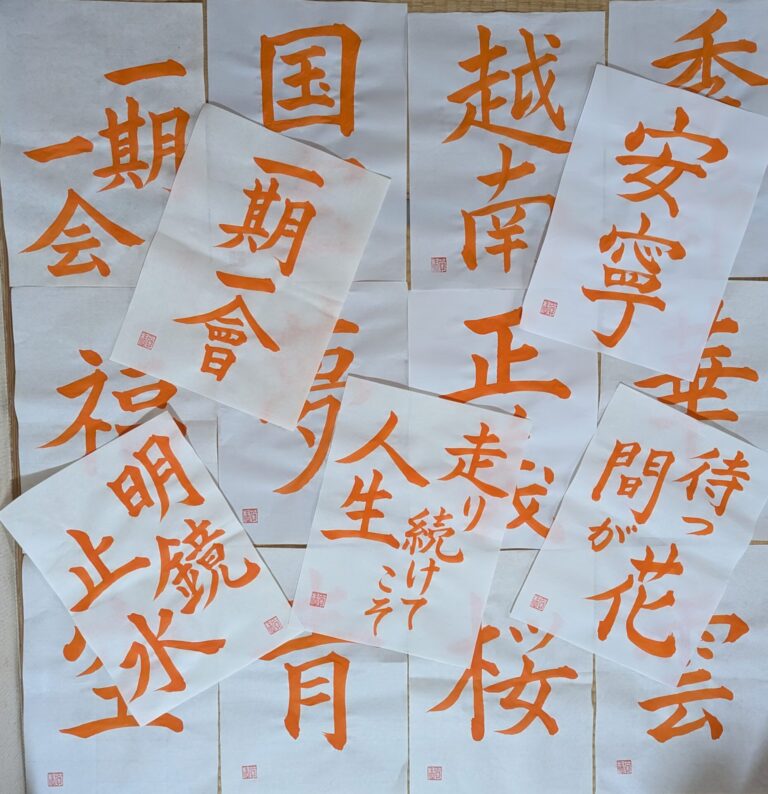 一期
一会
国
越南
秀
一期
一會
安寧
福
正
華
明鏡
止水
走り
続けて
こそ
人生
待つ
間が
花
桜